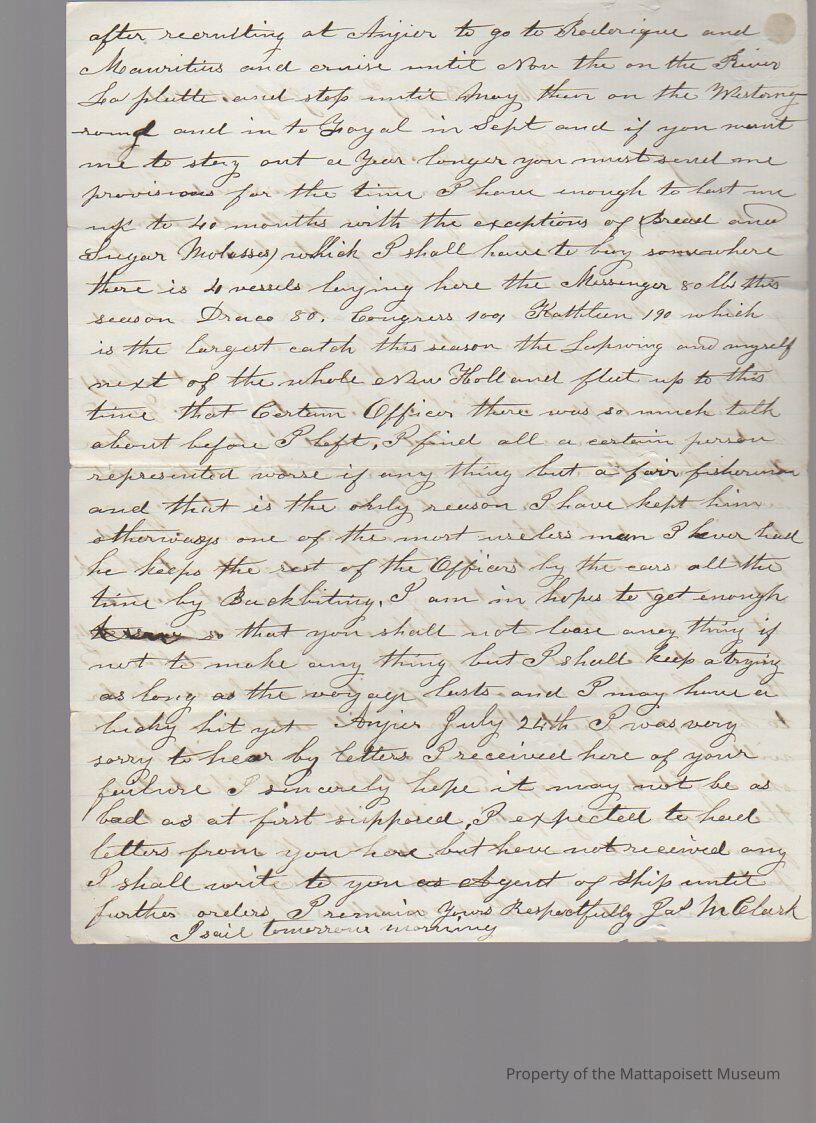 after recruiting at Anjier to go to Roderique and
Mauritius and cruise until Nov the on the River
La platte and stop until May then on the Western
round and in to Fayal in Sept and if you want
me to stay out a Year longer you must send me
provisions for the time I have enough to last me
up to 40 months with the exceptions of (Bread and
Sugar Molasses) which I shall have to buy somewhere
there is 4 vessels laying here the Messenger 80 lbs this
season Draco 80, Congress 100, Kathleen 190 which
is the largest catch this season the Lapwing and myself
next of the whole New Holland fleet up to this
time that Certain Officer there was so much talk
about before I left, I find all a certain person
represented worse if any thing but a fair fisherman
and that is the only reason I have kept him
otherways one of the most useless men I ever had
he keeps the rest of the Officers by the ears all the
time by Backbiting, I am in hopes to get enough
so that you shall not loose aney thing if
not to make any thing but I shall keep a trying
as long as the voyage lasts and I may have a
lucky hit yet Anjier July 24th I was very
sorry to hear by letters I received here of your
failure I sincerely hope it may not be as
bad as at first supposed, I expected to had
letters from you here but have not received any
I shall write to you as Agent of Ship until
further orders I remain Yours Respectfully Jas M Clark
I sail tomorrow morning
Property of the Mattapoisett Museum